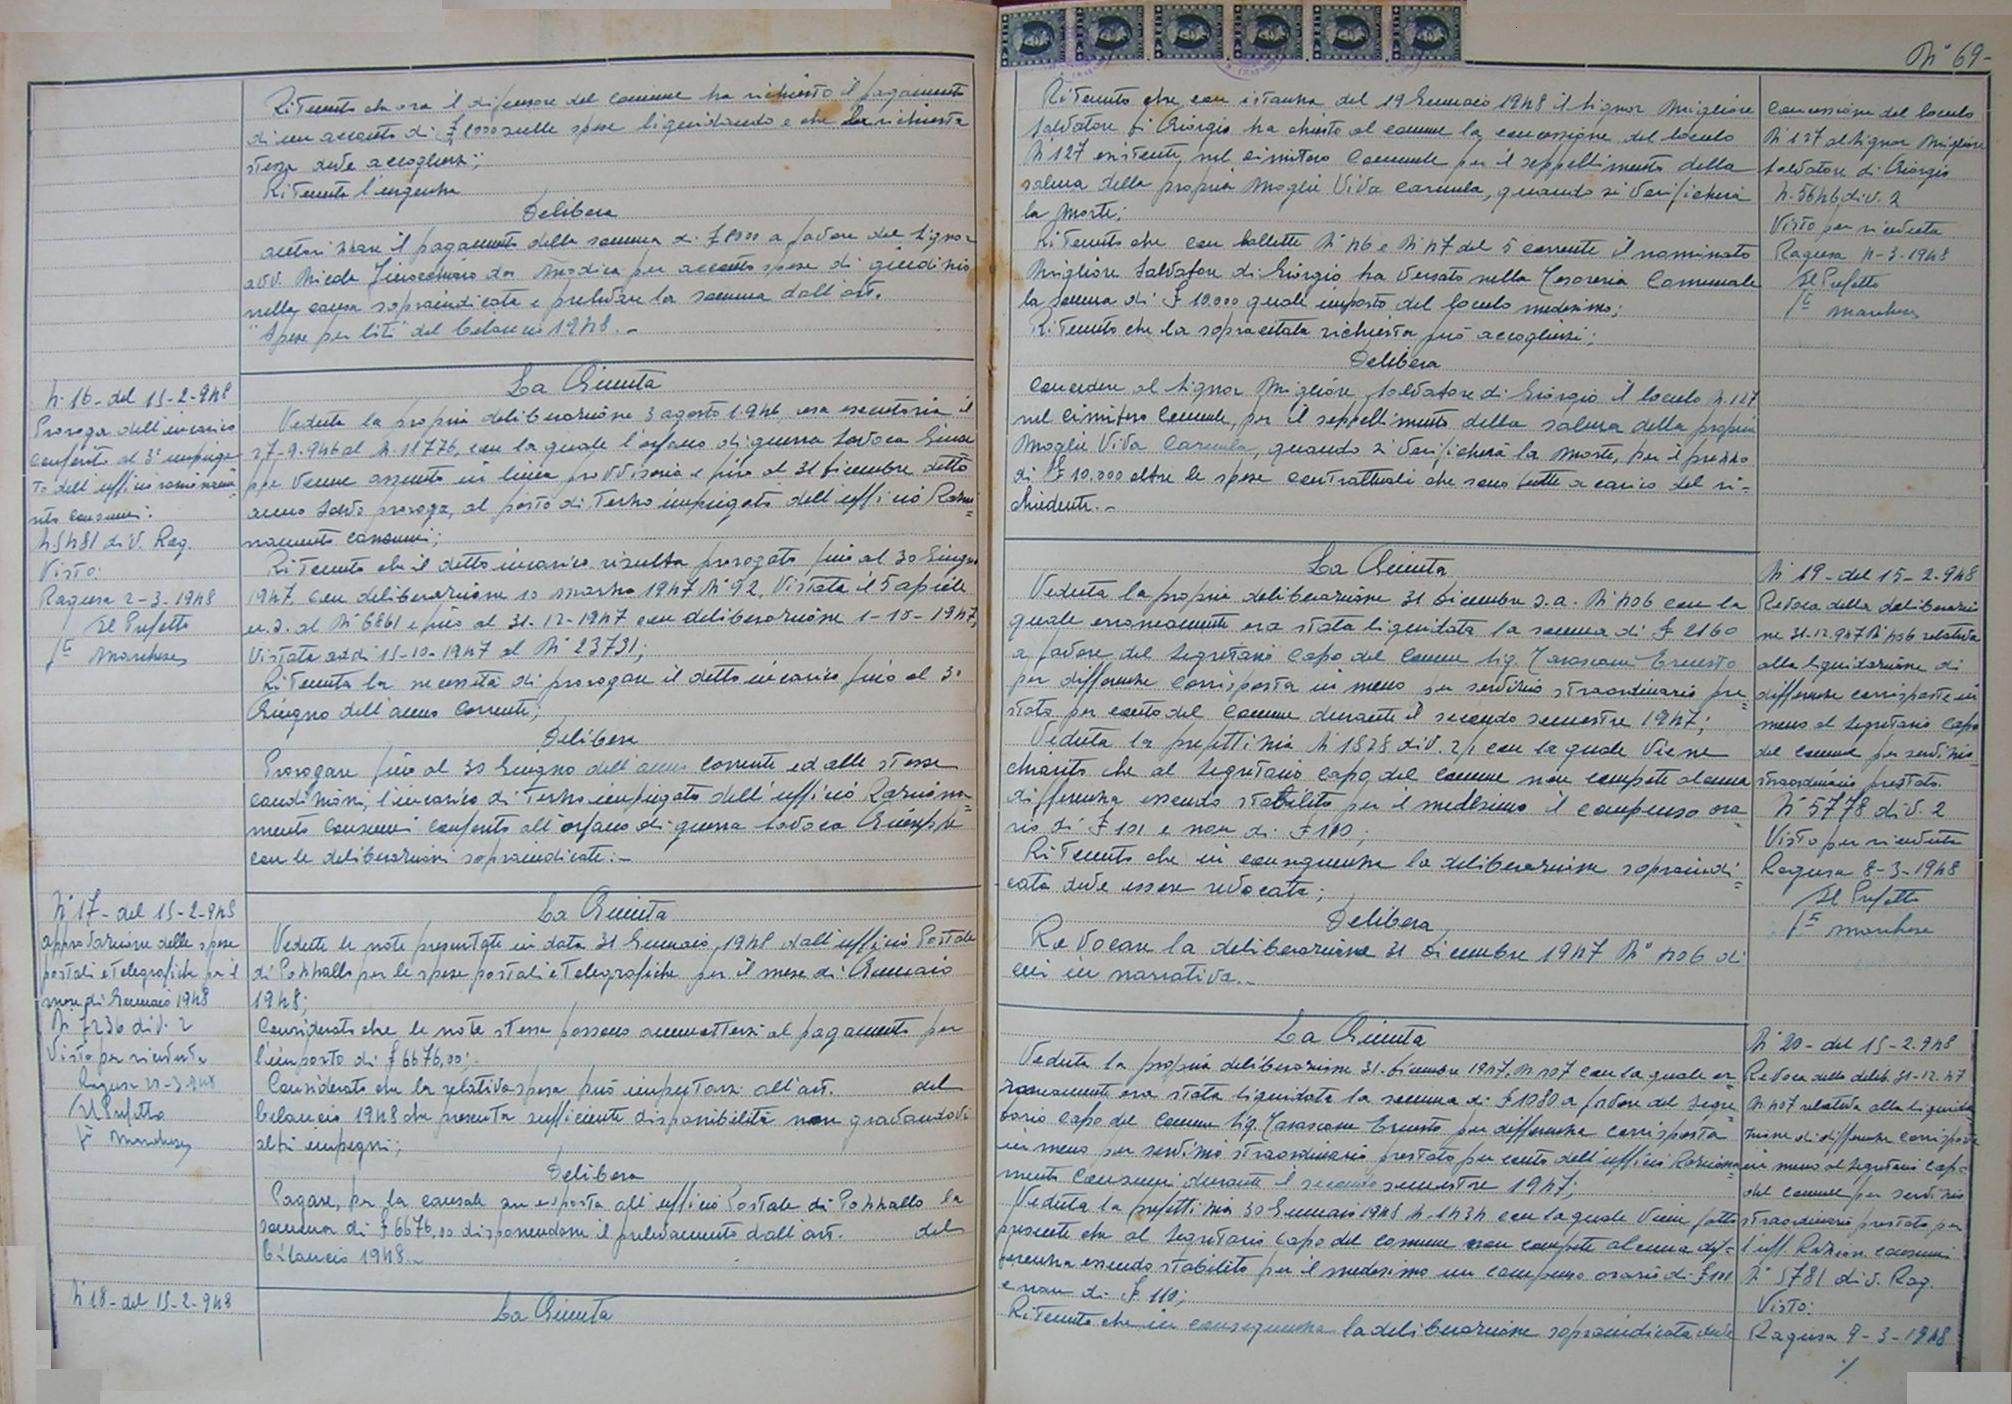 Ritenuto che ora il difensore del comune ha richiesto il pagamento
di un acconto di £ 8000 sulle spese liquidando e che la richiesta
stessa deve accogliersi;
Ritenuta l'urgenza
Delibera
autorizzare il pagamento della somma di £ 8000 a favore del Signor
avv. Michele da Modica per acconto spese di giudizio
nella causa sopraindicata e prelevare la somma dall'art.
"Spese per liti" del bilancio 1948.-
N. 16 - del 15-2-948
Proroga dell'incarico
conferito al 3° impiega-
to dell'ufficio raziona-
mento consumi.
N. 5481 div. Rag.
Visto:
Ragusa 2-3-1948
Il Prefetto
Ft Marchese
La Giunta
Veduta la propria deliberazione 3 agosto 1946, resa esecutoria il
27-9-946 al N. 11776, con la quale l'orfano di guerra Savoca Giuse
ppe venne assunto in linea provvisoria e fino al 31 Dicembre detto
anno salvo proroga, al posto di Terzo impiegato dell'ufficio Razio
namento consumi;
Ritenuto che il detto incarico risulta prorogato fino al 30 Giugno
1947, con deliberazione 10 marzo 1947 N° 92, Vistata il 5 aprile
u.s. al N° 6861 e fino al 31-12-1947 con deliberazione 1-10-1947,
Vistata addì 15-10-1947 al N° 23731;
Ritenuta la necessità di prorogare il detto incarico fino al 30
Giugno dell'anno corrente;
Delibera
Prorogare fino al 30 Giugno dell'anno corrente ed alle stesse
condizioni, l'incarico di Terzo impiegato dell'ufficio Raziona-
mento consumi conferito all'orfano di guerra Savoca Giuseppe
con le deliberazioni sopraindicate.-
N° 17 - del 15-2-948
approvazione delle spese
postali e telegrafiche per il
mese di Gennaio 1948
N° 7236 div. 2
Visto per ricevuta
Ragusa -3-948
Il Prefetto
Ft Marchese
La Giunta
Vedute le note presentate in data 31 Gennaio 1948 dall'ufficio Postale
di Pozzallo per le spese postali e telegrafiche per il mese di Gennaio
1948;
Considerato che le note stesse possono ammettersi al pagamento per
l'importo di £ 6676,00;
Considerato che la relativa spesa può imputarsi all'art. del
bilancio 1948 che presenta sufficiente disponibilità non gravandovi
altri impegni;
Delibera
Pagare, per la causale su esposta all'ufficio Postale di Pozzallo la
somma di £ 6676,00 disponendone il prelevamento dall'art. del
bilancio 1948.-
N 18 - del 15-2-948
La Giunta
N° 69-
Ritenuto che con istanza del 19 Gennaio 1948 il Signor Migliore
Salvatore di Giorgio ha chiesto al comune la concessione del loculo
N° 127 esistente nel cimitero Comunale per il seppellimento della
salma della propria Moglie Viva Carmela, quando si verificherà
la morte;
Ritenuto che con bollette N° 46 e N° 47 del 5 corrente il nominato
Migliore Salvatore di Giorgio ha versato nella Tesoreria Comunale
la somma di £ 10.000 quale importo del loculo medesimo;
Ritenuto che la sopracitata richiesta può accogliersi;
Delibera
Concedere al Signor Migliore Salvatore di Giorgio il loculo N. 127
nel Cimitero Comunale, per il seppellimento della salma della propria
Moglie Viva Carmela, quando si verificherà la morte, per il prezzo
di £ 10.000 oltre le spese contrattuali che sono tutte a carico del ri-
chiedente.-
Concessione del loculo
N 127 al Signor Migliore
Salvatore di Giorgio
N. 5646 div. 2
Visto per ricevuta
Ragusa -3-1948
Il Prefetto
Ft Marchese
La Giunta
Veduta la propria deliberazione 31 Dicembre s.a. N° 406 con la
quale erroneamente era stata liquidata la somma di £ 2160
a favore del Segretario Capo del Comune Sig. Tarascone Ernesto
per differenze corrisposta in meno per servizio straordinario pre-
stato per conto del Comune durante il secondo semestre 1947;
Veduta la prefettizia N 1828 div. 2/1 con la quale viene
chiarito che al Segretario Capo del Comune non compete alcuna
differenza essendo stabilito per il medesimo il compenso ora-
rio di £ 101 e non di £ 110;
Ritenuto che in conseguenza la deliberazione sopraindi-
cata deve essere revocata;
Delibera
Revocare la deliberazione 31 Dicembre 1947 N° 406 di
cui in narrativa.-
N° 19 - del 15-2-948
Revoca della deliberazio
ne 31-12-947 N° 406 relativa
alla liquidazione di
differenze corrisposte in
meno al Segretario Capo
del comune per servizio
straordinario prestato.
N° 5778 div. 2
Visto per ricevuta
Ragusa 8-3-1948
Il Prefetto
Ft Marchese
La Giunta
Veduta la propria deliberazione 31 Dicembre 1947, N 407 con la quale er-
roneamente era stata liquidata la somma di £ 1080 a favore del Segre-
tario Capo del Comune Sig. Tarascone Ernesto per differenze corrisposta
in meno per servizio straordinario prestato per conto dell'ufficio Raziona-
mento Consumi durante il secondo semestre 1947;
Veduta la prefettizia 30 Gennaio 1948 N. 1434 con la quale viene fatto
presente che al Segretario Capo del comune non compete alcuna dif-
ferenza essendo stabilito per il medesimo un compenso orario di £ 101
e non di £ 110;
Ritenuto che in conseguenza la deliberazione sopraindicata deve
N° 20 - del 15-2-948
Revoca della delib. 31-12-47
N° 407 relativa alla liquida
zione di differenze corrisposte
in meno al Segretario Capo
del comune per servizio
straordinario prestato per
l'uff. Razion. consumi
N° 5781 div. Rag.
Visto:
Ragusa 9-3-1948
./.